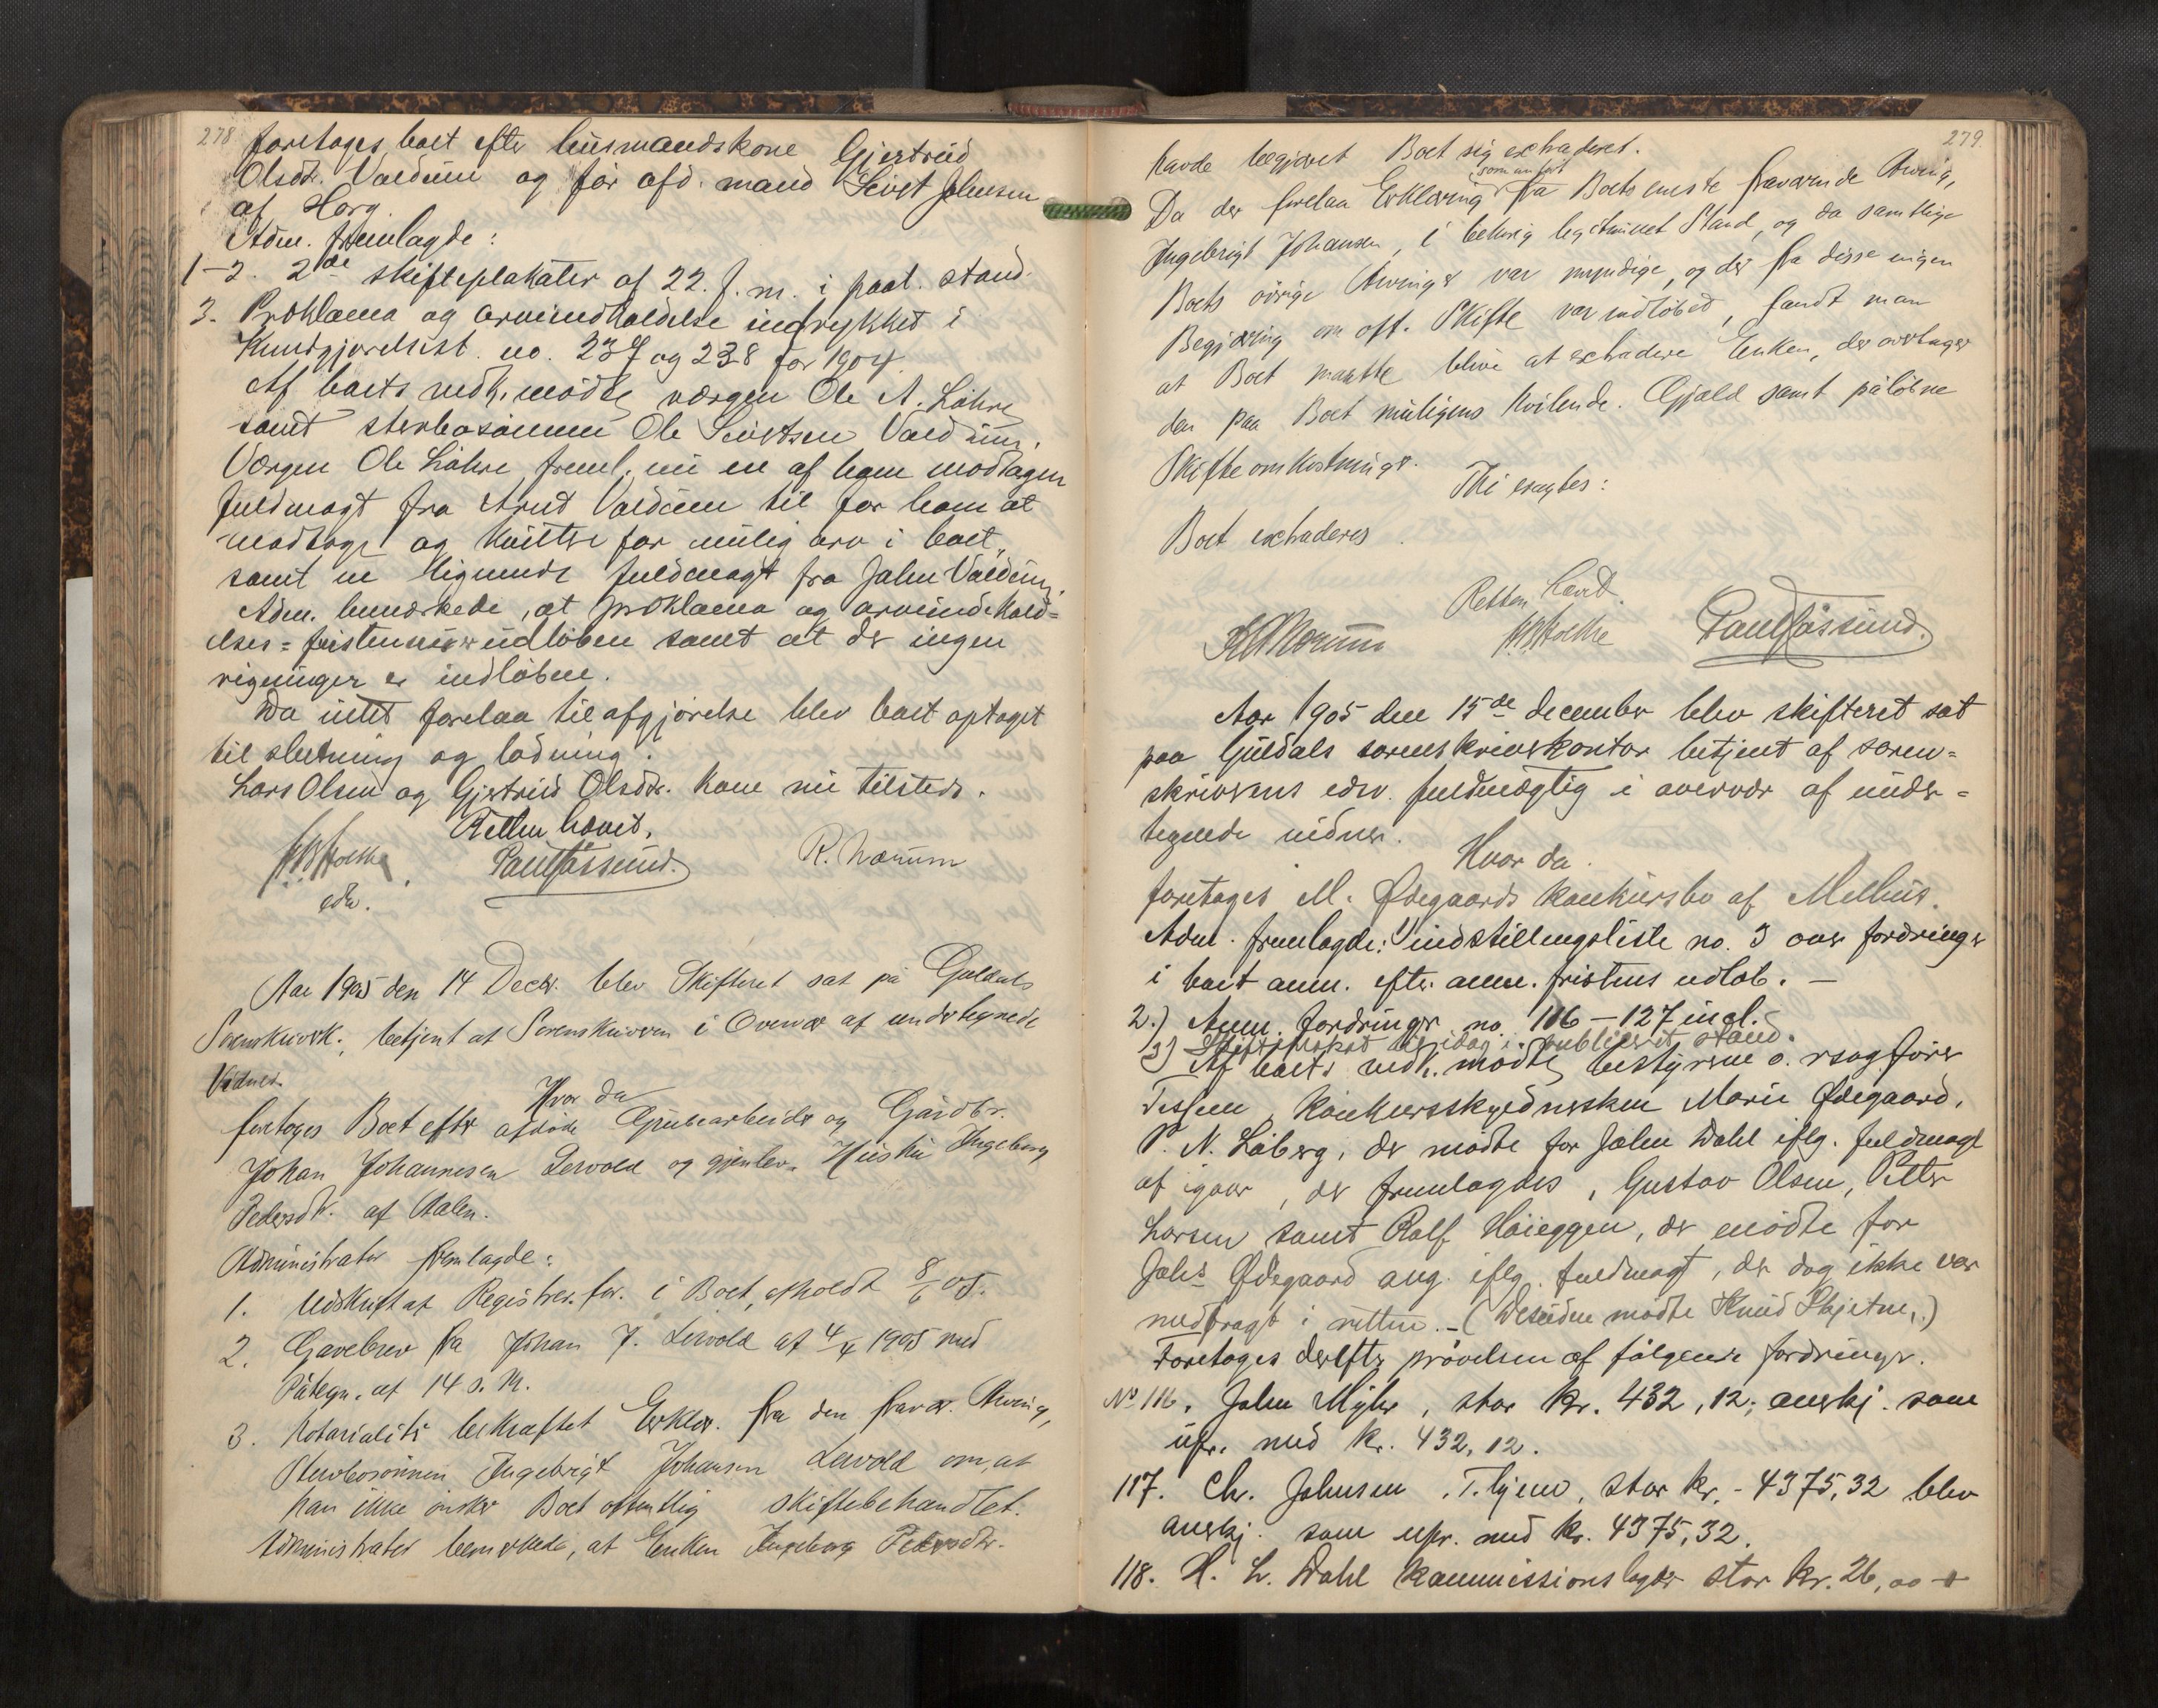 278
foretages boet efter husmandskone Gjertrud
Olsdt. Valdum og før afd. mand Sivert Johnsen
af Horg.
Adm. fremlagde:
1-2. 2de skifteplakater af 22. f. m. i paat. stand.
3. Proklama og arveindkaldelse indrykket i
Kundgjørelsest. no. 237 og 238 for 1904.
Af boets vedk. mødte værgen Ole A. Løhre
samt sterbosønnen Ole Sivertsen Valdum.
Værgen Ole Løhre freml. nu en af ham modtagen
fuldmagt fra Arnt Valdum til for ham at
modtage og kvittere for mulig arv i boet,
samt en lignende fuldmagt fra John Valdum.
Adm. bemærkede, at proklama og arveindkald-
elses-fristen er udløben samt at der ingen
regninger er indløbne.
Da intet forelaa til afgjørelse blev boet optaget
til slutning og lodning.
Lars Olsen og Gjertrud Olsdtr. kom nu tilstede.
Retten hævet.
Paul Fossund. R. Worumm
edv.
Aar 1905 den 14 Decbr. blev Skifteret sat på Guldals
Sorenskriverk., betjent af Sorenskriveren i Overvær af undertegnede
Vidner.
Hvor da
foretoges Boet efter afdøde Grubearbeider og Gårdbr.
Johan Johannesen Lervold og gjenlev. Hustru Ingeborg
Pedersdtr. af Aalen.
Administrator fremlagde:
1. Udskrift af Registrer.for. i Boet, afholdt 8/6 05.
2. Gavebrev fra Johan J. Lervold af 4/4 1905 med
Påtegn. af 14 s. M.
3. Notarialiter bekræftet Erklær. fra den fravær. Arving,
Sterbosønnen Ingebrigt Johansen Lervold om, at
han ikke ønsker Boet offentlig skiftebehandlet.
Administrator bemærkede, at Enken Ingeborg Pedersdtr.
279.
havde begjæret Boet sig extraderet.
Da der forelaa Erklæring som anført fra Boets eneste fraværende Arving,
Ingebrigt Johansen, i behørig legitimeret Stand, og da samtlige
Boets øvrige Arvinger var myndige, og der fra disse ingen
Begjæring om off. Skifte var indløbet, fandt man
at Boet maatte blive at extradere Enken, der overtager
den paa Boet muligens hvilende Gjæld samt påløbne
Skifteomkostninger.
Thi eragtes:
Boet extraderes.
Retten hævet.
Paul Fossund.
Aar 1905 den 15de december blev skifteret sat
paa Guldals sorenskriverkontor betjent af soren-
skriverens edsv. fuldmægtig i overvær af under-
tegnede vidner.
Hvor da.
foretoges M. Ødegaards konkursbo af Melhus.
Adm. fremlagde: 1) indstillingsliste no. 3 over fordringer
i boet anm. efter anm. fristens udløb. —
2.) Anm. fordringer no. 116 – 127 incl.
3) idag i publiceret stand.
Af boets vedk. mødte bestyreren o. rsagfører
Tessem, konkursskyldnersken Marie Ødegaard,
P. N. Løberg, der mødte for John Dahl iflg. fuldmagt
af igaar, der fremlagdes, Gustav Olsen, Petter
Larsen samt Rolf Høieggen, der mødte for
Johs Ødegaard ang. iflg. fuldmagt, der dog ikke var
medbragt i retten. – (Desuden mødte Knud Skjetne.)
Foretoges derefter prøvelsen af følgende fordringer.
No 116. John Myhr, stor kr. 432,12; anerkj. som
upr. med kr. 432,12.
117. Chr. Johnsen, T.hjem, stor kr. - 4375,32 blev
anerkj. som upr. med kr. 4375,32.
118. H. L. Dahl kommissionslager stor kr. 26,00